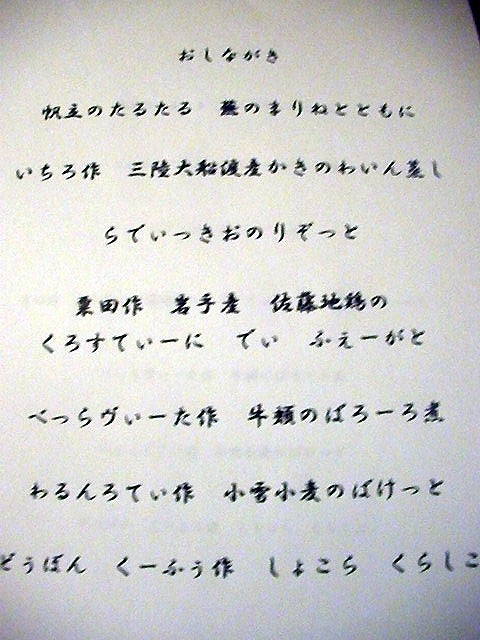 おしながき
帆立のたるたる　蕪のまりねとともに
いちろ作　三陸大船渡産かきのわいん蒸し
らでぃっきおのりぞっと
粟田作　岩手産　佐藤地鶏の
くろすてぃーに　でぃ　ふぇーがと
べっらヴぃーた作　牛頬のばろーろ煮
わるんろてい作　小雪小麦のばけっと
どぅぼん　くーふぅ作　しょこら　くらしこ